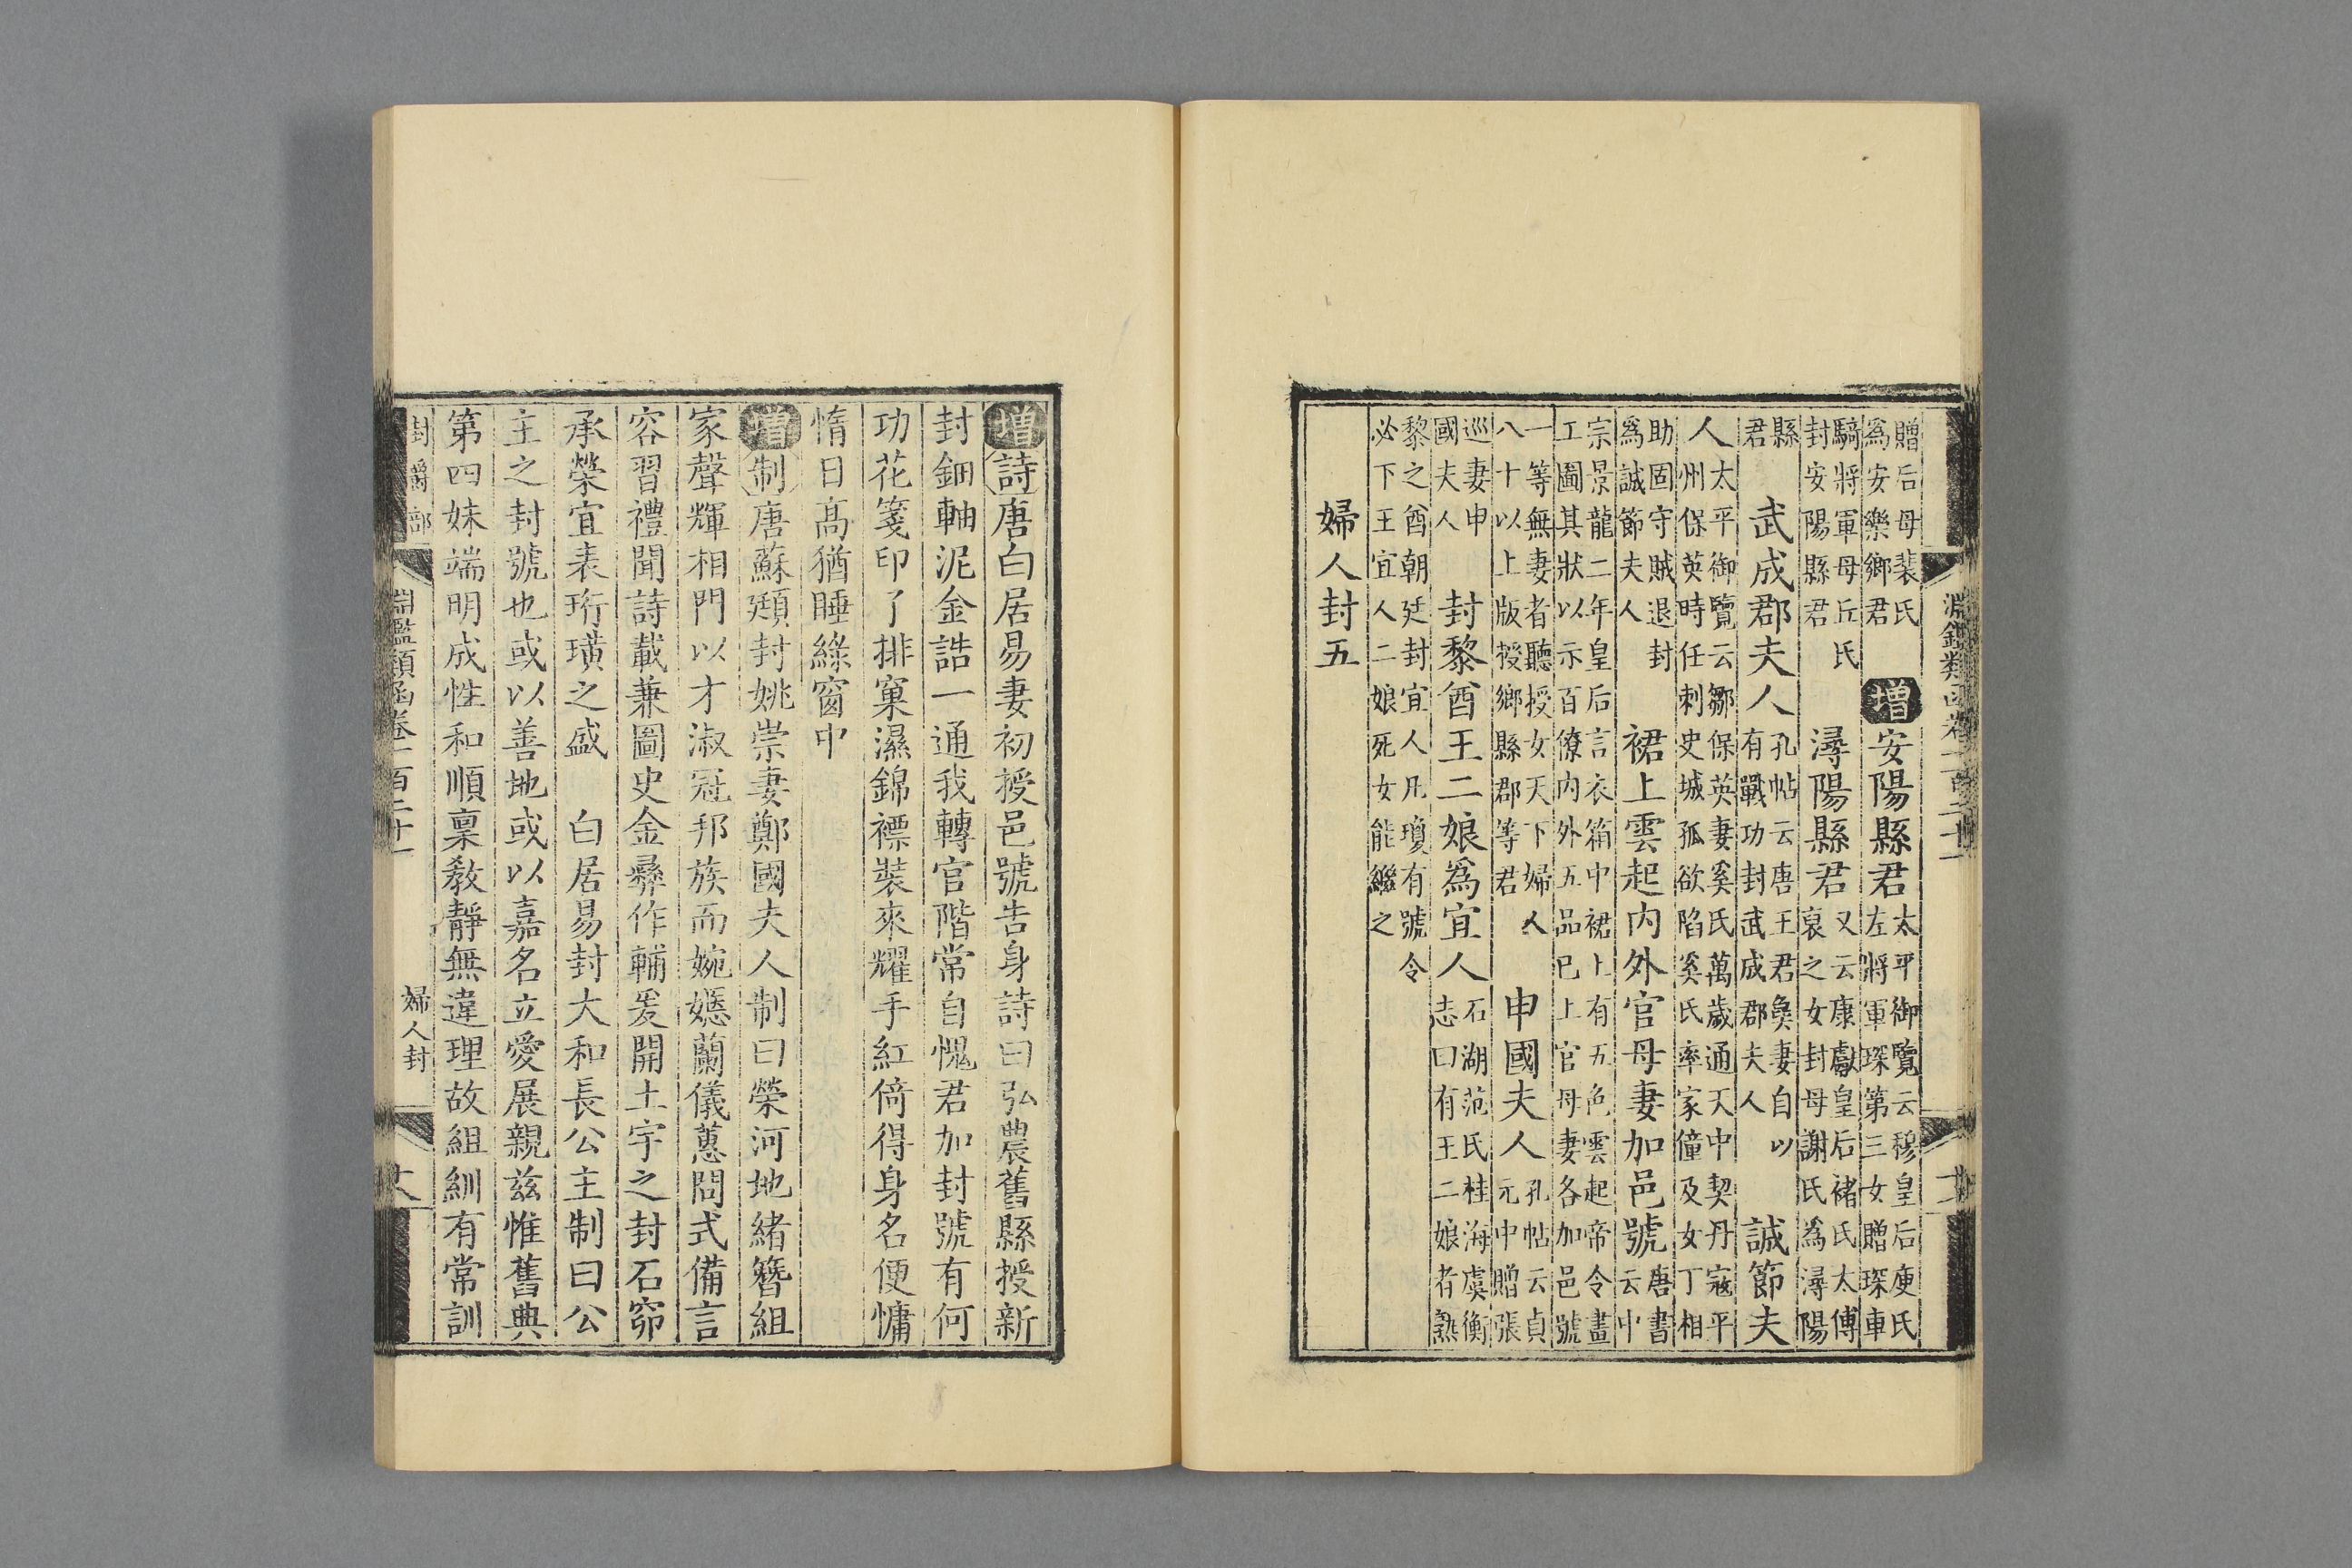 贈后母裴氏
爲安樂鄉君
增安陽縣君
太平御覽云穆皇后庾氏
左將軍琛第三女贈琛車
騎將軍母丘氏
封安陽縣君
潯陽縣君
又云康獻皇后褚氏太傅
裒之女封母謝氏爲潯陽
縣
君
武成郡夫人
孔帖云唐王君㚟妻自以
有戰功封武成郡夫人
誠節夫
人
太平御覽云鄒保英妻奚氏萬歲通天中契丹寇平
州保英時任刺史城孤欲陷奚氏率家僮及女丁相
助固守賊退封
爲誠節夫人
裙上雲起內外官母妻加邑號
唐書
云中
宗景龍二年皇后言衣箱中裙上有五色雲起帝令畫
工圖其狀以示百僚內外五品已上官母妻各加邑號
一等無妻者聽授女天下婦人
八十以上版授鄉縣郡等君
申國夫人
孔帖云貞
元中贈張
巡妻申
國夫人
封黎酋王二娘爲宜人
石湖范氏桂海虞衡
志曰有王二娘者熟
黎之酋朝廷封宜人凡瓊有號令
必下王宜人二娘死女能繼之
婦人封五
增詩唐白居易妻初授邑號告身詩曰弘農舊縣授新
封鈿軸泥金誥一通我轉官階常自愧君加封號有何
功花箋印了排窠濕錦褾裝來耀手紅倚得身名便慵
惰日高猶睡綠窗中
增制唐蘇頲封姚崇妻鄭國夫人制曰榮河地緒簪組
家聲輝相門以才淑冠邦族而婉嫕蘭儀蕙問式備言
容習禮聞詩載兼圖史金彝作輔爰開土宇之封石窌
承榮宜表珩璜之盛　白居易封大和長公主制曰公
主之封號也或以善地或以嘉名立愛展親茲惟舊典
第四妹端明成性和順稟教靜無違理故組紃有常訓
封爵部
淵鑑類函卷一百二十一
婦人封